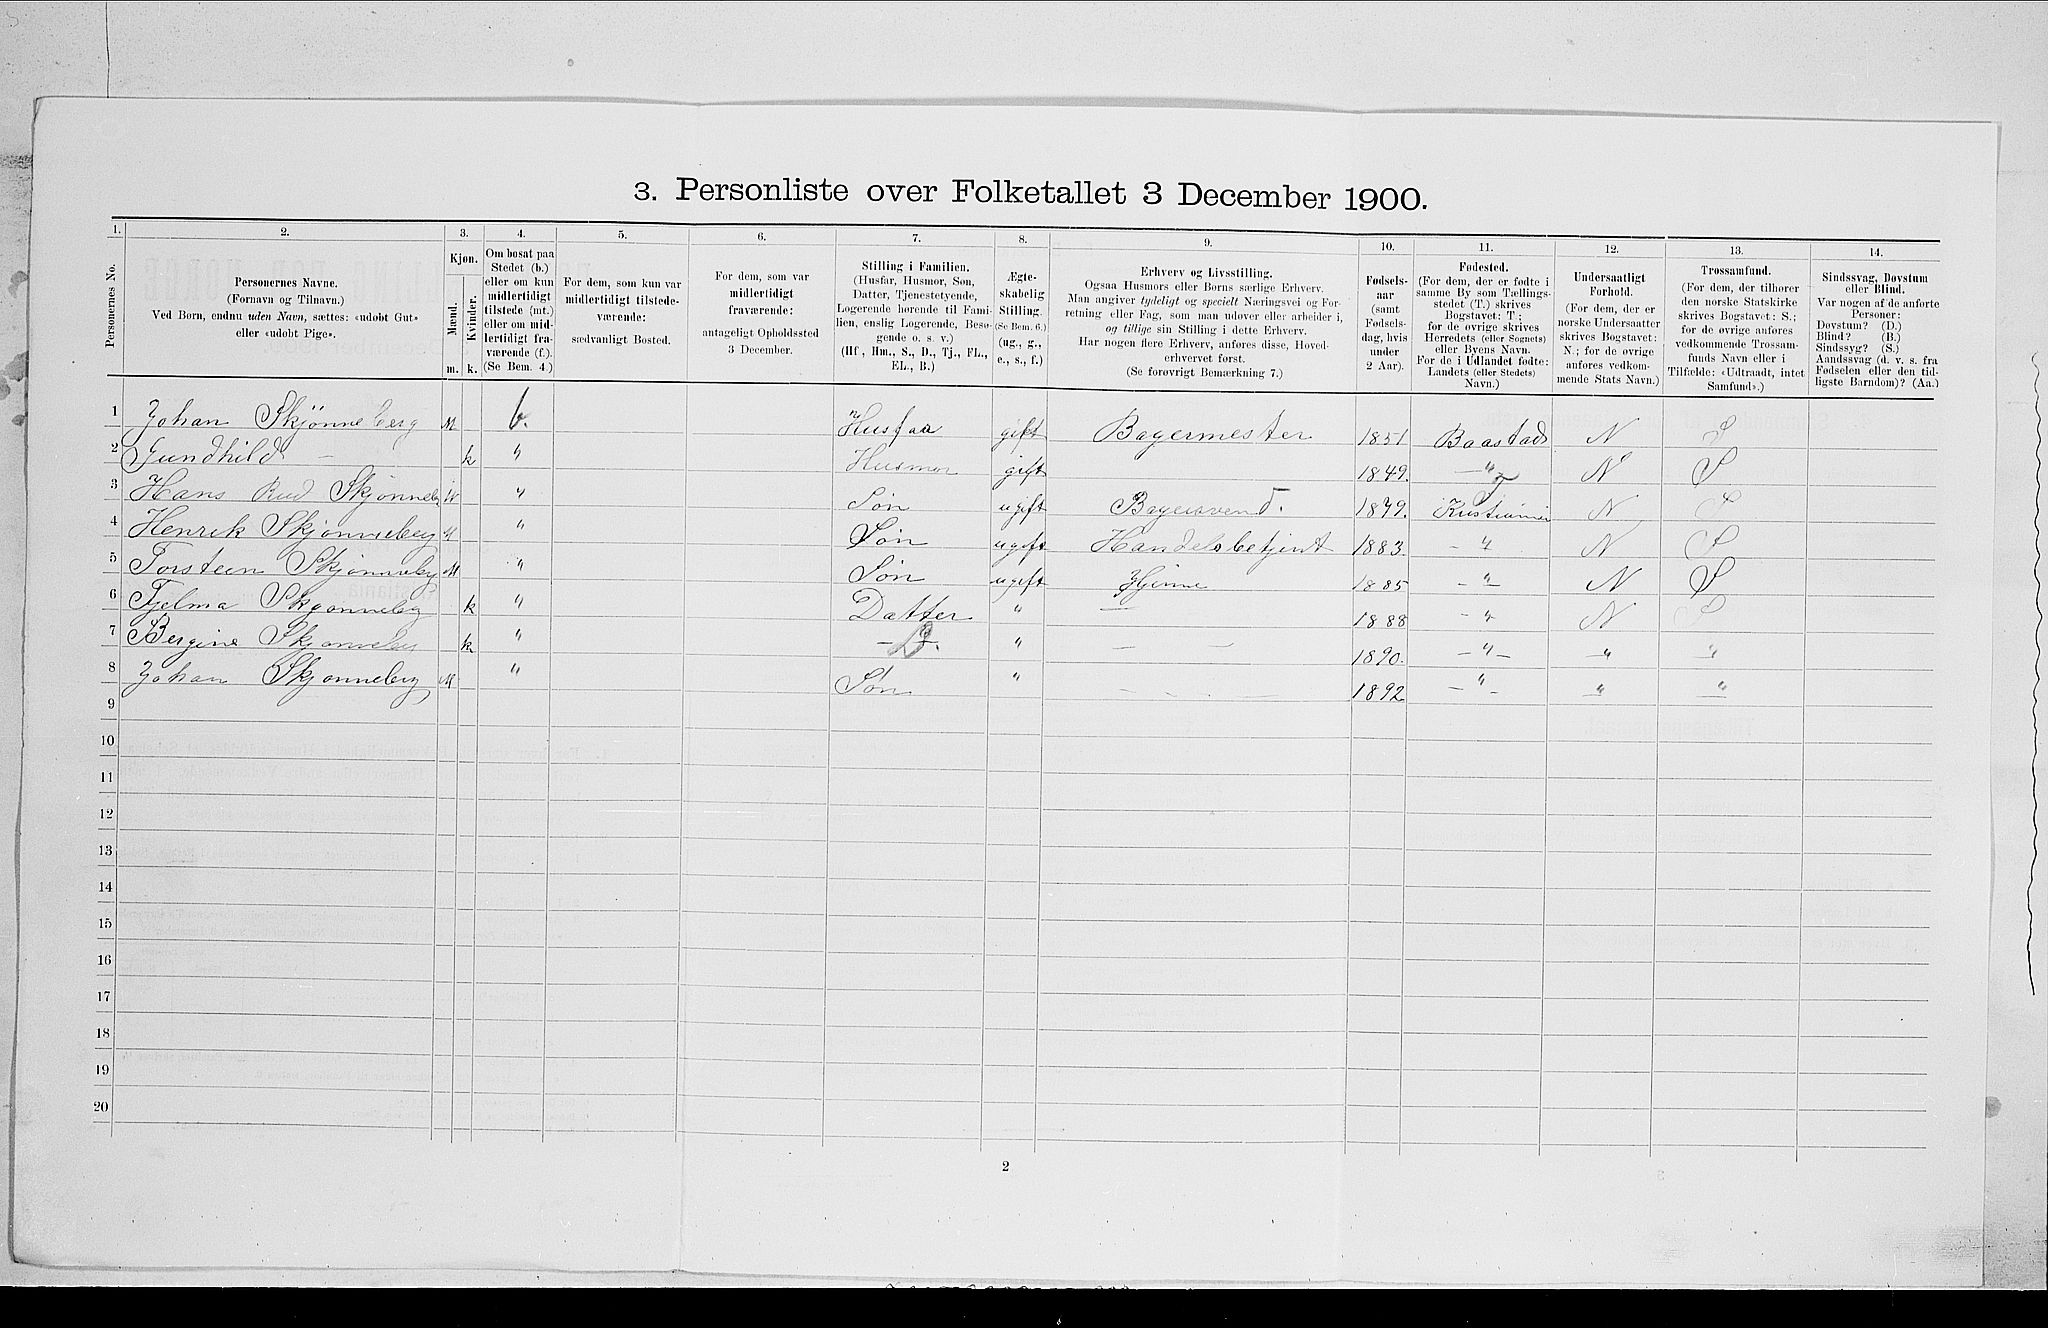 3. Personliste over Folketallet 3 December 1900.
1. 2. 3. 4. 5. 6. 7. 8. 9. 10. 11. 12. 13. 14.
Personernes No.
Personernes Navne.
(Fornavn og Tilnavn.)
Ved Børn, endnu uden Navn, sættes: «udøbt Gut»
eller «udøbt Pige».
Kjøn.
Mænd. Kvinder.
m. k.
Om bosat paa
Stedet (b.)
eller om kun
midlertidigt
tilstede (mt.)
eller om mid-
lertidigt fra-
værende (f.).
(Se Bem. 4.)
For dem, som kun var
midlertidigt tilstede-
værende:
sædvanligt Bosted.
For dem, som var
midlertidigt
fraværende:
antageligt Opholdssted
3 December.
Stilling i Familien.
(Husfar, Husmor, Søn,
Datter, Tjenestetyende,
Logerende hørende til Fami-
lien, enslig Logerende, Besø-
gende o. s. v.)
(Hf, Hm., S., D., Tj., FL.,
EL., B.)
Ægte-
skabelig
Stilling.
(Se Bem. 6.)
(ug., g.,
e., s., f.)
Erhverv og Livsstilling.
Ogsaa Husmors eller Børns særlige Erhverv.
Man angiver tydeligt og specielt Næringsvei og For-
retning eller Fag, som man udøver eller arbeider i,
og tillige sin Stilling i dette Erhverv.
Har nogen flere Erhverv, anføres disse, Hoved-
erhvervet først.
(Se forøvrigt Bemærkning 7.)
Fødsels-
aar
(samt
Fødsels-
dag, hvis
under
2 Aar).
Fødested.
(For dem, der er fødte i
samme By som Tællings-
stedet (T.) skrives
Bogstavet: T;
for de øvrige skrives
Herredets (eller Sognets)
eller Byens Navn.
For de i Udlandet fødte:
Landets (eller Stedets)
Navn.)
Undersaatligt
Forhold.
(For dem, der er
norske Undersaatter
skrives Bogstavet:
N.; for de øvrige
anføres vedkom-
mende Stats Navn.)
Trossamfund.
(For dem, der tilhører
den norske Statskirke
skrives Bogstavet: S.;
for de øvrige anføres
vedkommende Trossam-
funds Navn eller i
Tilfælde: «Udtraadt, intet
Samfund».)
Sindssvag, Døvstum
eller Blind.
Var nogen af de anførte
Personer:
Døvstum? (D.)
Blind? (B.)
Sindssyg? (S.)
Aandssvag (d. v. s. fra
Fødselen eller den tid-
ligste Barndom)? (Aa.)
1 Johan Skjønneberg M b. Husfaa gift Bagermester 1851 Baastad N S
2 Gundhild — k " Husmor gift 1849. —"— N S
3 Hans Rud Skjønneberg M " Søn ugift Bagersvend. 1879. T Kristiania N S
4 Henrik Skjønneberg M " Søn ugift Handelsbetjent 1883. —"— N S
5 Torsteen Skjønneberg M " Søn ugift Hjemme 1885 —"— N S
6 Tjelma Skjønneberg k " Datter " — 1888 —"— N S
7 Bergine Skjønneberg k " —D.— " — — 1890. —"— —"— —"—
8 Johan Skjønneberg M " Søn " — — — 1892 —"— —"— —"—
9
10
11
12
13
14
15
16
17
18
19
20
2